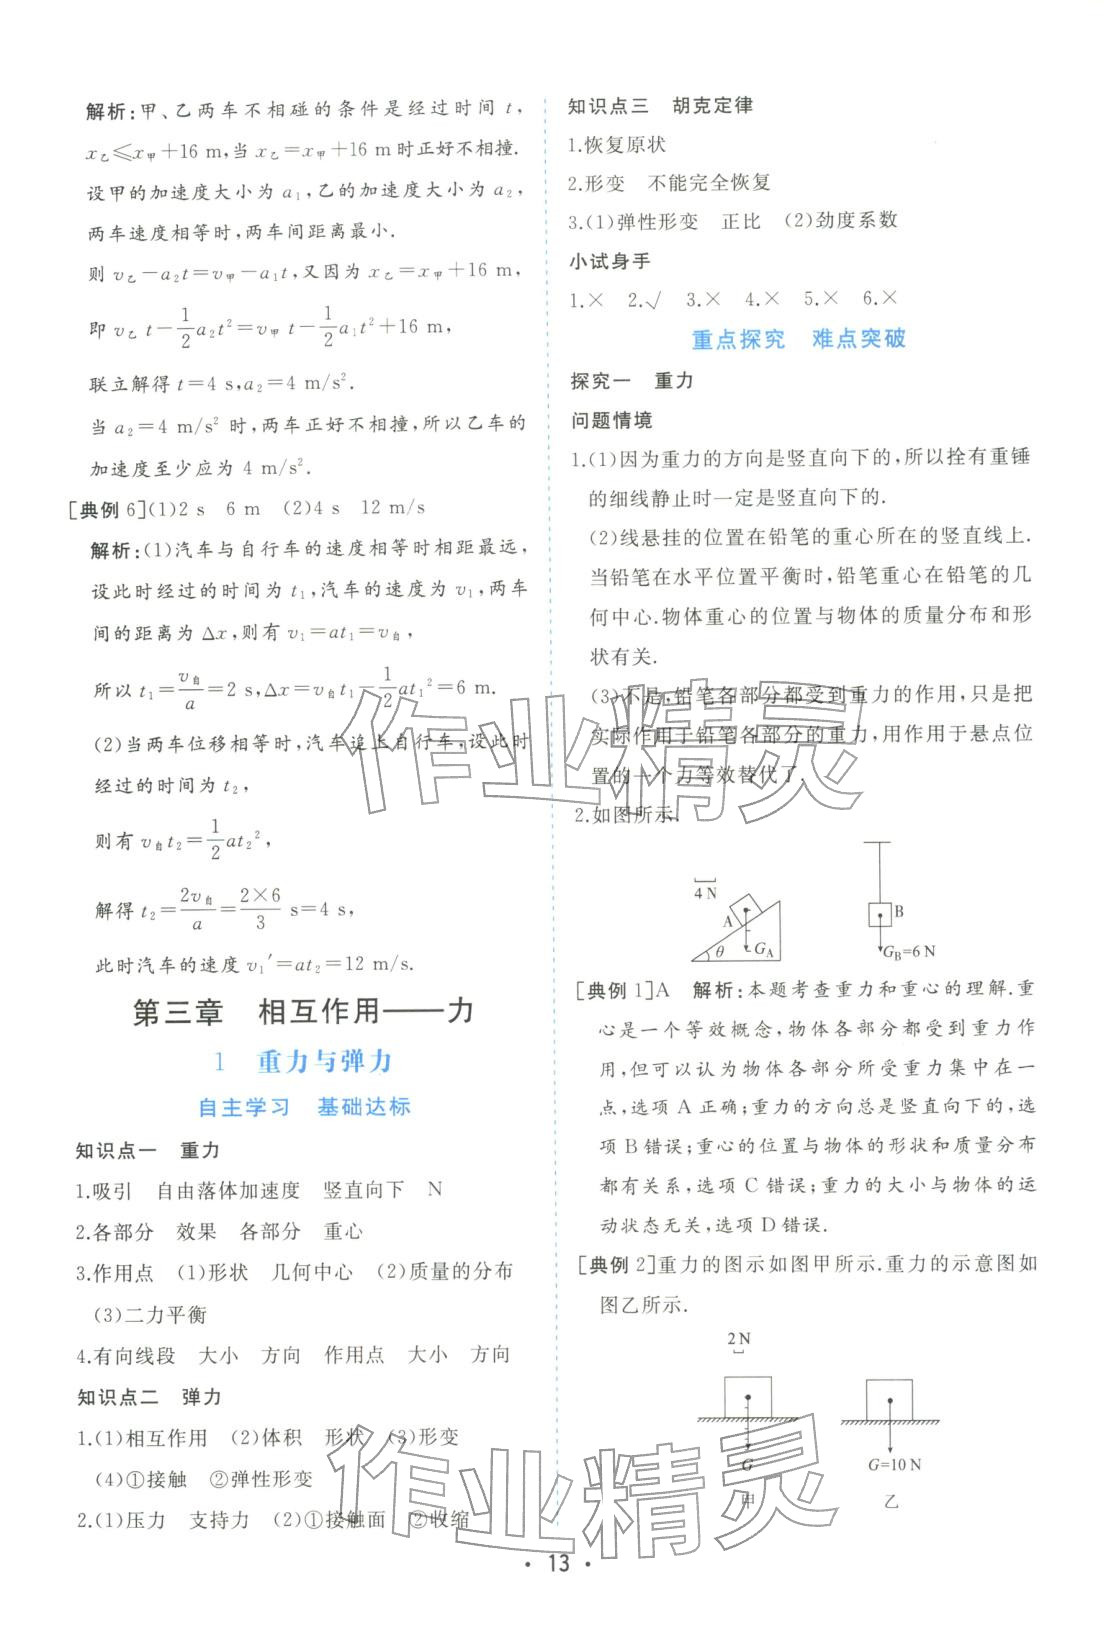 解析:甲、乙两车不相碰的条件是经过时间 t,
x乙≤x甲+16 m,当 x乙=x甲+16 m时正好不相撞.
设甲的加速度大小为 a₁,乙的加速度大小为 a₂,
两车速度相等时,两车间距离最小.
则 v乙-a₂t=v甲-a₁t,又因为 x乙=x甲+16 m,
即 v乙 t-1/2a₂t²=v甲 t-1/2a₁t²+16 m,
联立解得 t=4 s,a₂=4 m/s².
当 a₂=4 m/s² 时,两车正好不相撞,所以乙车的
加速度至少应为 4 m/s².
[典例 6](1)2 s 6 m (2)4 s 12 m/s
解析:(1)汽车与自行车的速度相等时相距最远,
设此时经过的时间为 t₁,汽车的速度为 v₁,两车
间的距离为 Δx,则有 v₁=at₁=v自,
所以 t₁=v自/a=2 s,Δx=v自t₁-1/2at₁²=6 m.
(2)当两车位移相等时,汽车追上自行车,设此时
经过的时间为 t₂,
则有 v自t₂=1/2at₂²,
解得 t₂=2v自/a=2×6/3 s=4 s,
此时汽车的速度 v₁′=at₂=12 m/s.
第三章 相互作用——力
1 重力与弹力
自主学习 基础达标
知识点一 重力
1.吸引 自由落体加速度 竖直向下 N
2.各部分 效果 各部分 重心
3.作用点 (1)形状 几何中心 (2)质量的分布
(3)二力平衡
4.有向线段 大小 方向 作用点 大小 方向
知识点二 弹力
1.(1)相互作用 (2)体积 形状 (3)形变
(4)①接触 ②弹性形变
2.(1)压力 支持力 (2)①接触面 ②收缩
知识点三 胡克定律
1.恢复原状
2.形变 不能完全恢复
3.(1)弹性形变 正比 (2)劲度系数
小试身手
1.× 2.√ 3.× 4.× 5.× 6.×
重点探究 难点突破
探究一 重力
问题情境
1.(1)因为重力的方向是竖直向下的,所以拴有重锤
的细线静止时一定是竖直向下的.
(2)线悬挂的位置在铅笔的重心所在的竖直线上.
当铅笔在水平位置平衡时,铅笔重心在铅笔的几
何中心.物体重心的位置与物体的质量分布和形
状有关.
(3)不是,铅笔各部分都受到重力的作用,只是把
实际作用于铅笔各部分的重力,用作用于悬点位
置的一个力等效替代了.
2.如图所示.
4 N
A
θ
G_A
B
G_B=6 N
[典例 1]A 解析:本题考查重力和重心的理解.重
心是一个等效概念,物体各部分都受到重力作
用,但可以认为物体各部分所受重力集中在一
点,选项 A 正确;重力的方向总是竖直向下的,选
项 B 错误;重心的位置与物体的形状和质量分布
都有关系,选项 C 错误;重力的大小与物体的运
动状态无关,选项 D 错误.
[典例 2]重力的图示如图甲所示.重力的示意图如
图乙所示.
2 N
G
甲
G=10 N
乙
作业精灵
作业精灵
· 13 ·